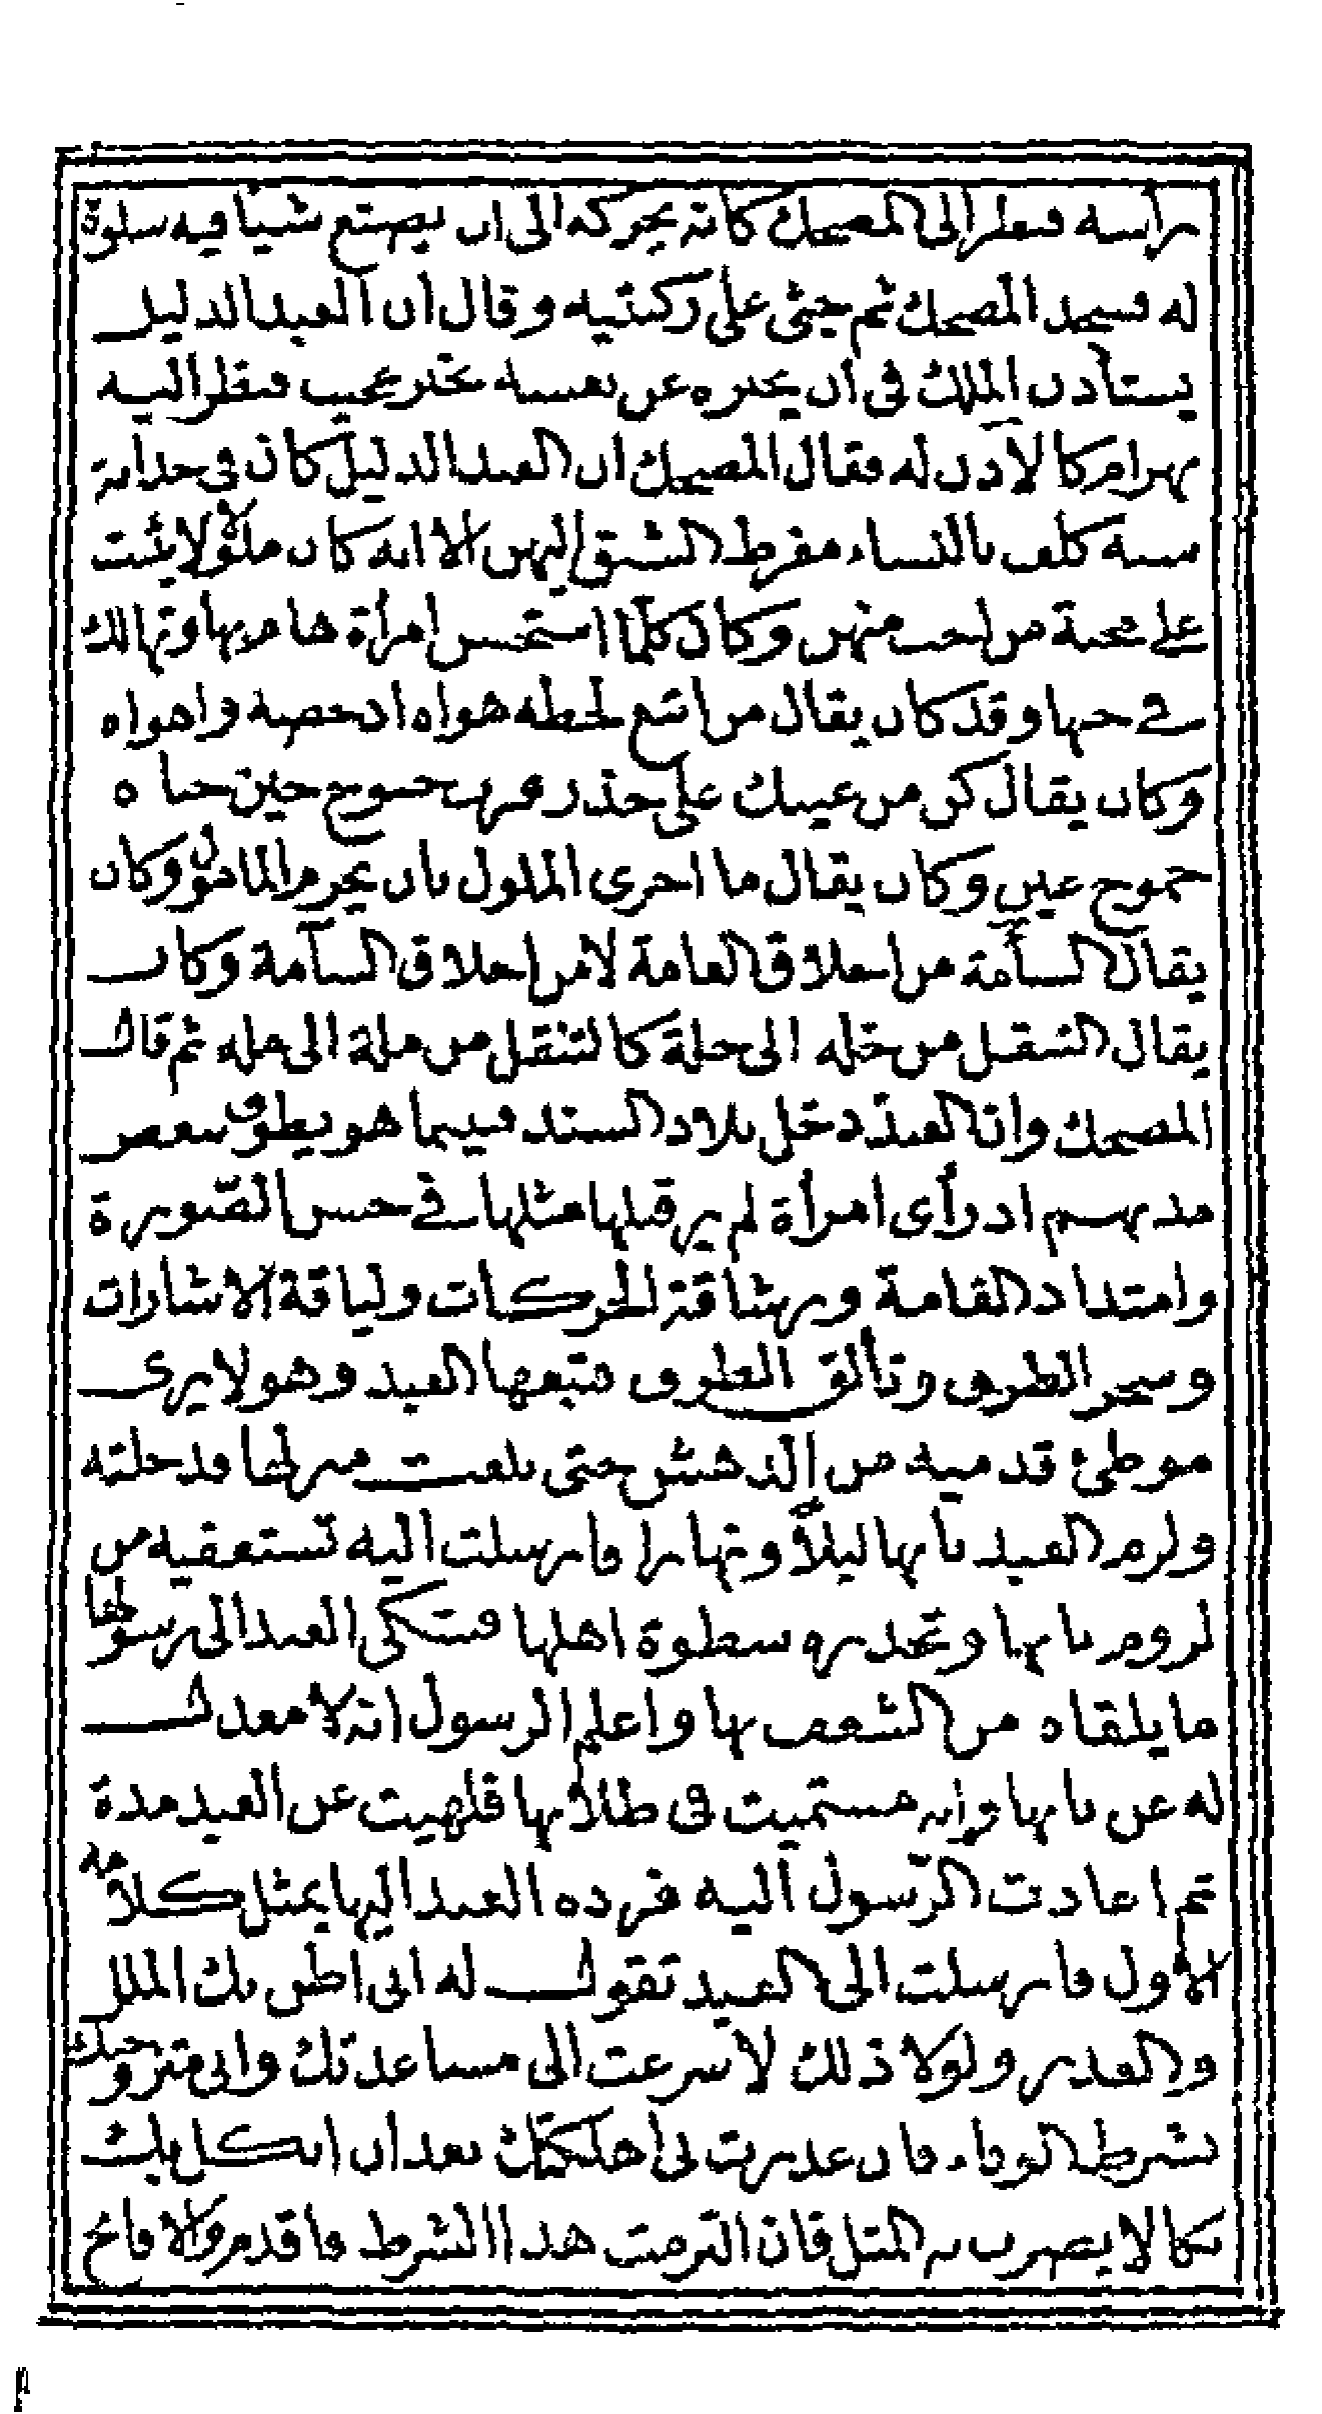 رأسه فنظر إلى المضحك كأنه يحركه الى ان يصنع شيأ فيه سلوة
له فسجد المضحك ثم جثى على ركبتيه وقال ان العبد الذليل
يستأذن الملك في ان يخبره عن نفسه بخبر عجيب فنظر اليه
بهرام كالاذن له فقال المضحك ان العبد الذليل كان في حداثة
سنه كلف بالنساء مفرط الشبق اليهن الا انه كان ملولا لا يثبت
على محبة من احب منهن وكان كلما استحسن امرأة هام بها وتهالك
في حبها وقد كان يقال من اتبع لحظه هواه ادحضه واهواه
وكان يقال كن من عينك على حذر فرب جنوح حين جناه
جموح عين وكان يقال ما احرى الملول بان يحرم المامول وكان
يقال السأمة من اخلاق العامة لا من اخلاق السآمة وكان
يقال التنقل من خله الى خلة كالتنقل من ملة الى مله ثم قال
المضحك وان العبد دخل بلاد السند فبينما هو يطوف ببعض
مدنهم اذ رأى امرأة لم ير قبلها مثلها في حسن الصورة
وامتداد القامة ورشاقة الحركات ولباقة الاشارات
وسحر الطرف وتألق الظرف فتبعها العبد وهو لا يرى
موطئ قدميه من الدهش حتى بلغت منزلها فدخلته
ولزم العبد بابها ليلاً ونهارا فارسلت اليه تستعفيه من
لزوم بابها وتحذره سطوة اهلها فشكى العبد الى رسولها
ما يلقاه من الشغف بها واعلم الرسول انه لا معدل
له عن بابها وانه مستميت في طلابها فلهيت عن العبد مدة
ثم اعادت الرّسول اليه فرده العبد اليها بمثل كلامه
الاول فارسلت الى العبد تقول له اني اظن بك الملل
والغدر ولولا ذلك لاسرعت الى مساعدتك واني متزوجتك
بشرط الوفاء فان غدرت بي اهلكتك بعد ان انكل بك
نكالا يضرب به المثل فان التزمت هذا الشرط فاقدم والا فانج